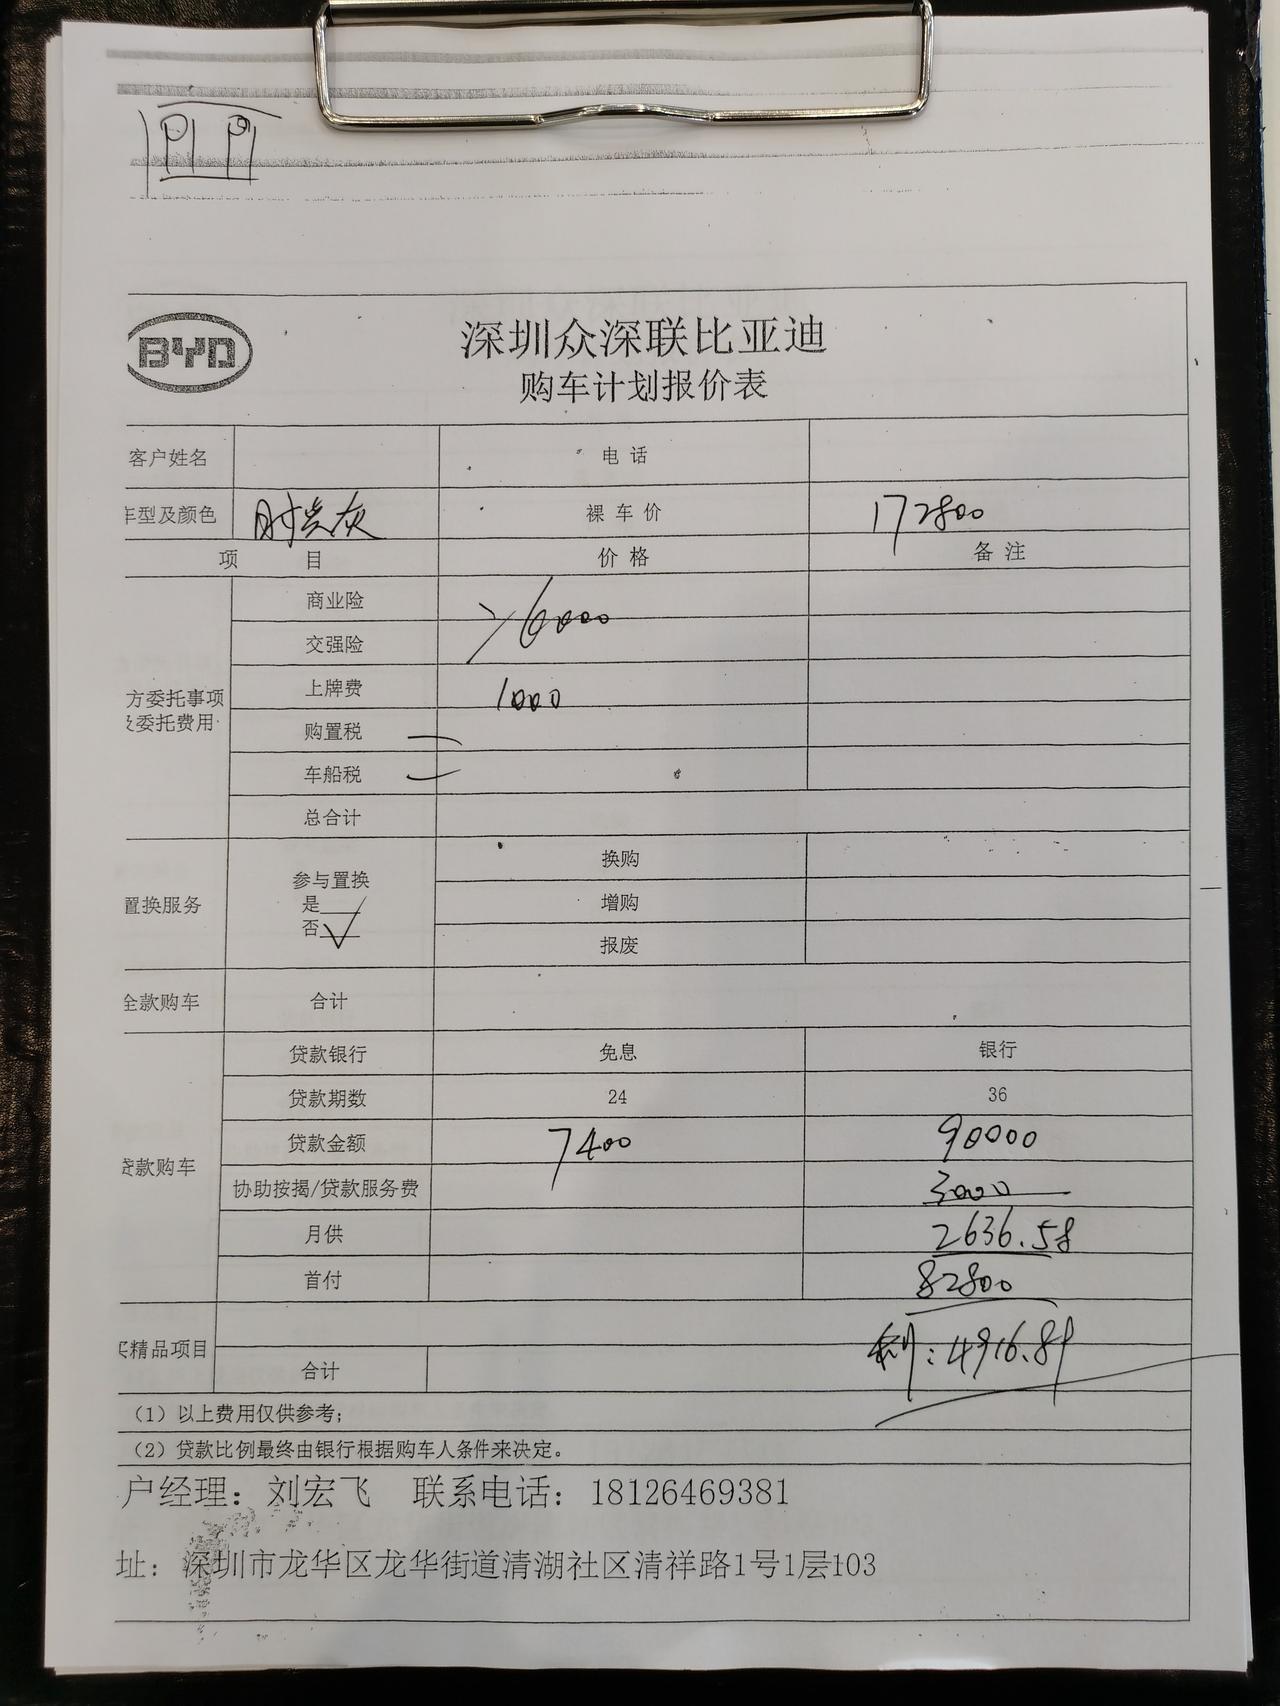 BYD
深圳众深联比亚迪
购车计划报价表
客户姓名 电话
车型及颜色 时光灰 裸车价 172800
项目 价格 备注
商业险
交强险 6000
上牌费 1000
方委托事项
及委托费用
购置税
车船税
总合计
置换服务 参与置换
是
否 ✓
换购
增购
报废
全款购车 合计
贷款购车
贷款银行 免息 银行
贷款期数 24 36
贷款金额 7400 90000
协助按揭/贷款服务费 3000
月供 2636.58
首付 82800
精品项目
利:4916.89
合计
(1)以上费用仅供参考;
(2)贷款比例最终由银行根据购车人条件来决定。
户经理:刘宏飞 联系电话:18126469381
址:深圳市龙华区龙华街道清湖社区清祥路1号1层103